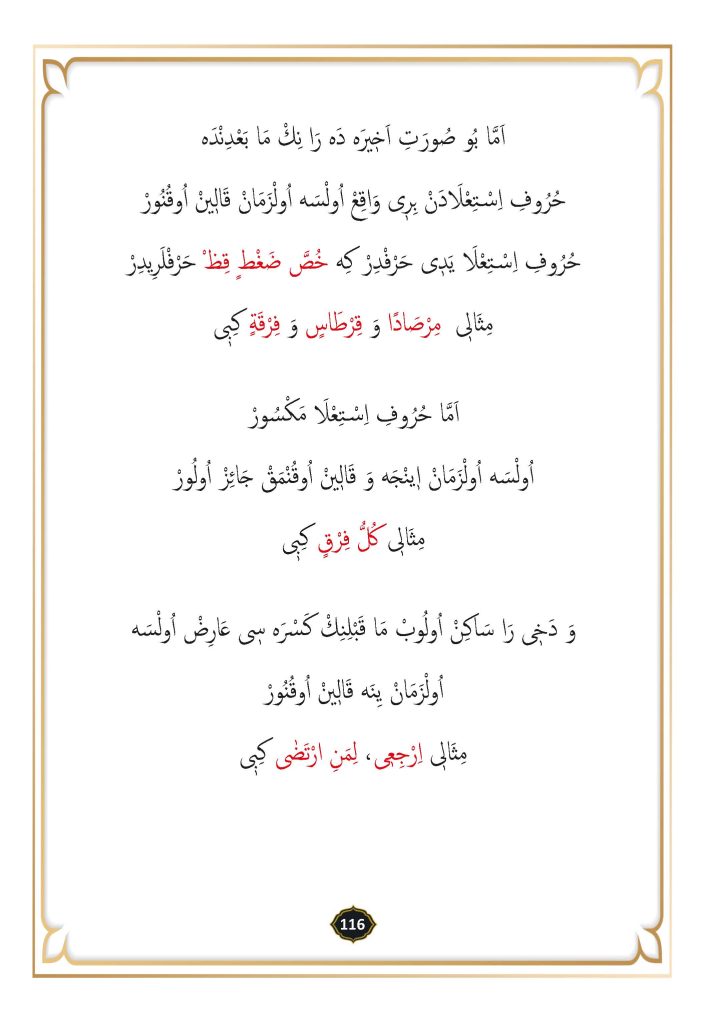 اَمَّا بُو صُورَتِ اَخٖيرَه دَه رَا نِكْ مَا بَعْدِنْدَه
حُرُوفِ اِسْتِعْلَادَنْ بِرٖى وَاقِعْ اُولْسَه اُولْزَمَانْ قَالٖينْ اُوقُنُورْ
حُرُوفِ اِسْتِعْلَا يَدٖى حَرْفْدِرْ كِه خُصَّ ضَغْطٍ قِظْ حَرْفْلَرِيدِرْ
مِثَالٖى مِرْصَادًا وَ قِرْطَاسٍ وَ فِرْقَةٍ كِبٖى
اَمَّا حُرُوفِ اِسْتِعْلَا مَكْسُورْ
اُولْسَه اُولْزَمَانْ اٖينْجَه وَ قَالٖينْ اُوقُنْمَقْ جَائِزْ اُولُورْ
مِثَالٖى كُلُّ فِرْقٍ كِبٖى
وَ دَخٖى رَا سَاكِنْ اُولُوبْ مَا قَبْلِنِكْ كَسْرَه سٖى عَارِضْ اُولْسَه
اُولْزَمَانْ يِنَه قَالٖينْ اُوقُنُورْ
مِثَالٖى اِرْجِعٖى، لِمَنِ ارْتَضٰى كِبٖى
116